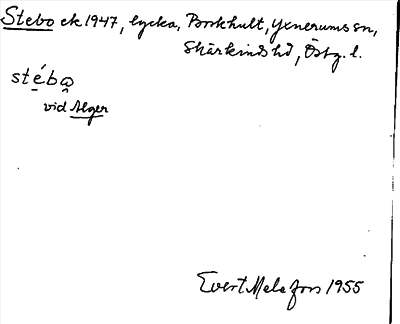 Stebo ek 1947, lycka, Borkhult, Yxnerums sn,
Skärkinds hd, Östg. l.
stébω
vid Alger
Evert Melefors 1955